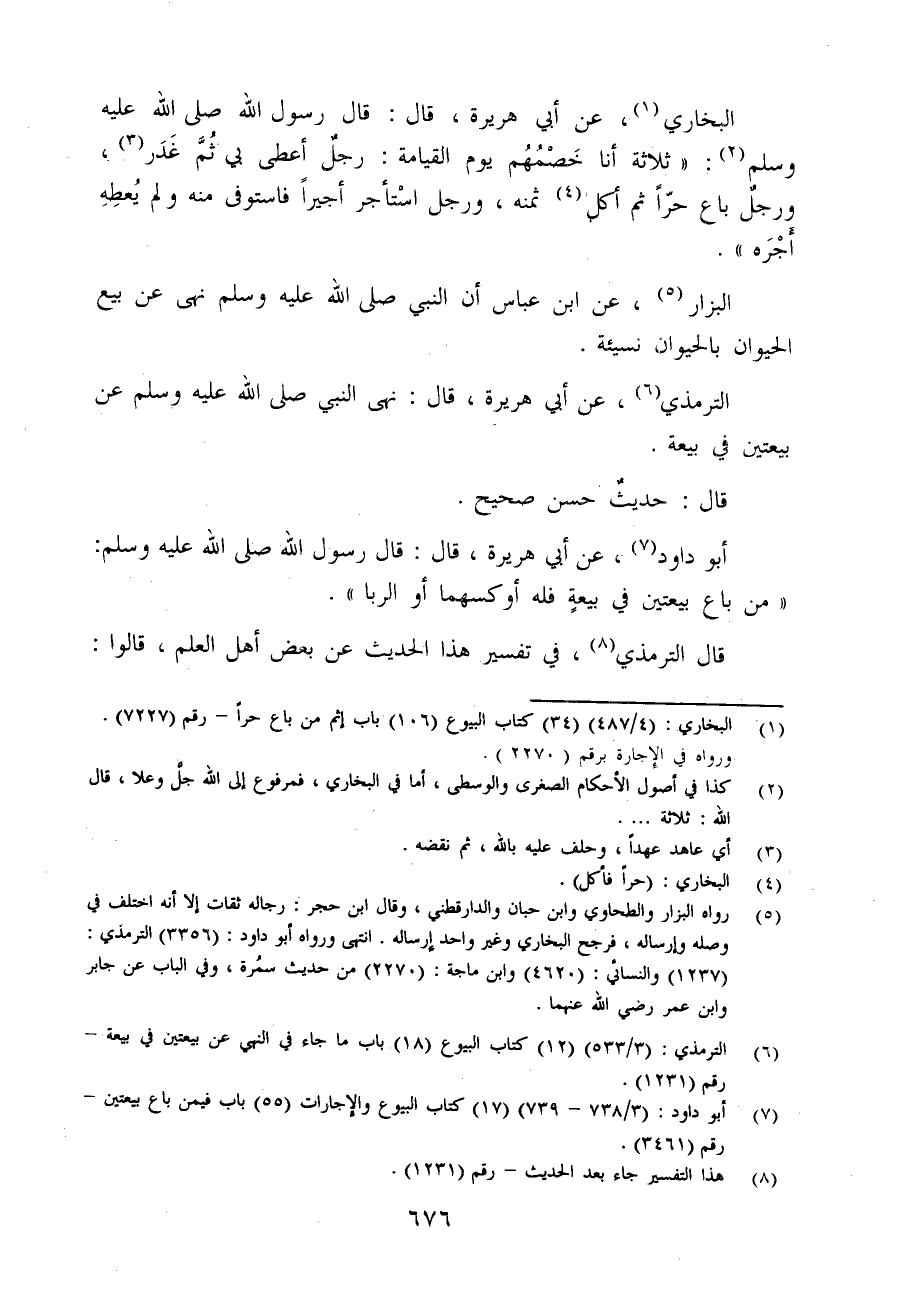 البخاري(١)، عن أبي هريرة ، قال : قال رسول الله صلى الله عليه
وسلم(٢): « ثلاثة أنا خَصْمُهُم يوم القيامة : رجلٌ أعطى بي ثُمَّ غَدَر(٣) ،
ورجلٌ باع حرّاً ثم أكل(٤) ثمنه ، ورجل اسْتأجر أجيراً فاستوفى منه ولم يُعطِهِ
أَجْرَه » .
البزار(٥) ، عن ابن عباس أن النبي صلى الله عليه وسلم نهى عن بيع
الحيوان بالحيوان نسيئة .
الترمذي(٦) ، عن أبي هريرة ، قال : نهى النبي صلى الله عليه وسلم عن
بيعتين في بيعة .
قال : حديثٌ حسن صحيح .
أبو داود(٧) ، عن أبي هريرة ، قال : قال رسول الله صلى الله عليه وسلم:
« من باع بيعتين في بيعةٍ فله أوكسهما أو الربا » .
قال الترمذي(٨) ، في تفسير هذا الحديث عن بعض أهل العلم ، قالوا :
(١) البخاري : (٤٨٧/٤) (٣٤) كتاب البيوع (١٠٦) باب إثم من باع حراً – رقم (٧٢٢٧) .
ورواه في الإجارة برقم ( ٢٢٧٠ ) .
(٢) كذا في أصول الأحكام الصغرى والوسطى ، أما في البخاري ، فمرفوع إلى الله جلَّ وعلا ، قال
الله : ثلاثة ... .
(٣) أي عاهد عهداً ، وحلف عليه بالله ، ثم نقضه .
(٤) البخاري : (حراً فأكل) .
(٥) رواه البزار والطحاوي وابن حبان والدارقطني ، وقال ابن حجر : رجاله ثقات إلا أنه اختلف في
وصله وإرساله ، فرجح البخاري وغير واحد إرساله . انتهى ورواه أبو داود : (٣٣٥٦) الترمذي :
(١٢٣٧) والنسائي : (٤٦٢٠) وابن ماجة : (٢٢٧٠) من حديث سمُرة ، وفي الباب عن جابر
وابن عمر رضي الله عنهما .
(٦) الترمذي : (٥٣٣/٣) (١٢) كتاب البيوع (١٨) باب ما جاء في النهي عن بيعتين في بيعة –
رقم (١٢٣١) .
(٧) أبو داود : (٧٣٨/٣ – ٧٣٩) (١٧) كتاب البيوع والإجارات (٥٥) باب فيمن باع بيعتين –
رقم (٣٤٦١) .
(٨) هذا التفسير جاء بعد الحديث – رقم (١٢٣١) .
٦٧٦